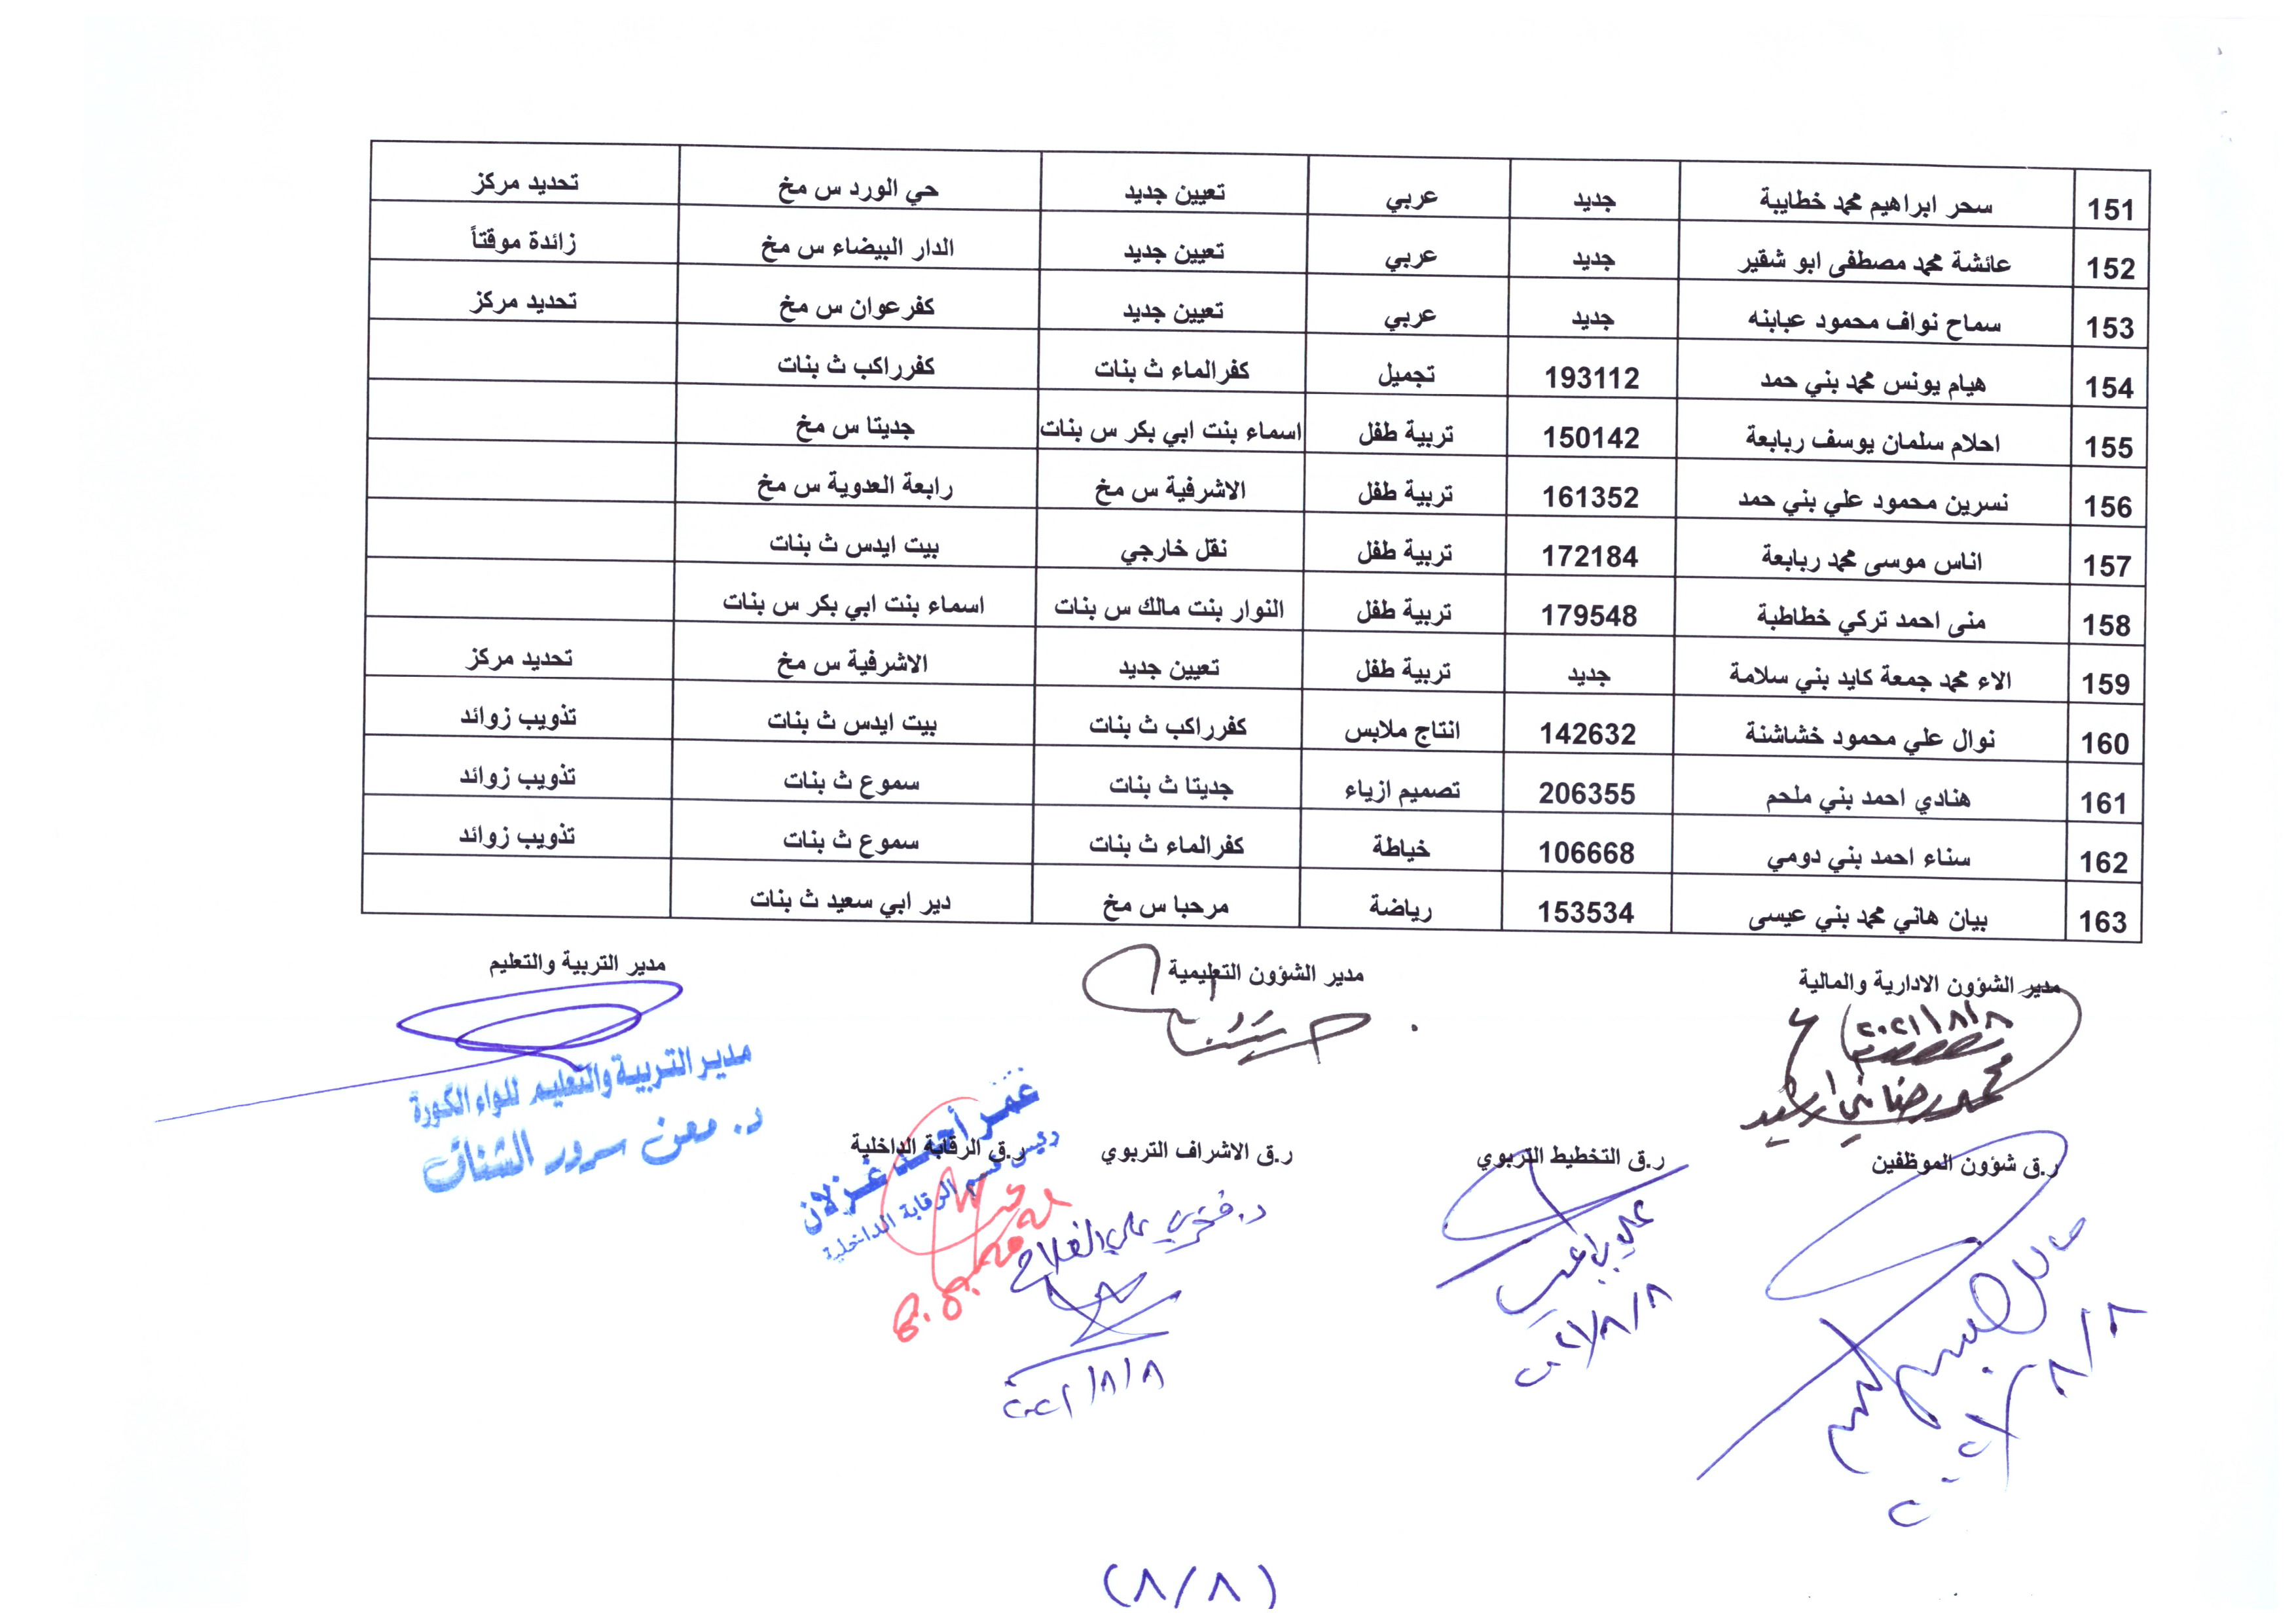 151 سحر ابراهيم محمد خطايبة جديد عربي تعيين جديد حي الورد س مخ تحديد مركز
152 عائشة محمد مصطفى ابو شقير جديد عربي تعيين جديد الدار البيضاء س مخ زائدة موقتاً
153 سماح نواف محمود عبابنه جديد عربي تعيين جديد كفرعوان س مخ تحديد مركز
154 هيام يونس محمد بني حمد 193112 تجميل كفرالماء ث بنات كفرراكب ث بنات
155 احلام سلمان يوسف ربابعة 150142 تربية طفل اسماء بنت ابي بكر س بنات جديتا س مخ
156 نسرين محمود علي بني حمد 161352 تربية طفل الاشرفية س مخ رابعة العدوية س مخ
157 اناس موسى محمد ربابعة 172184 تربية طفل نقل خارجي بيت ايدس ث بنات
158 منى احمد تركي خطاطبة 179548 تربية طفل النوار بنت مالك س بنات اسماء بنت ابي بكر س بنات
159 الاء محمد جمعة كايد بني سلامة جديد تربية طفل تعيين جديد الاشرفية س مخ تحديد مركز
160 نوال علي محمود خشاشنة 142632 انتاج ملابس كفرراكب ث بنات بيت ايدس ث بنات تذويب زوائد
161 هنادي احمد بني ملحم 206355 تصميم ازياء جديتا ث بنات سموع ث بنات تذويب زوائد
162 سناء احمد بني دومي 106668 خياطة كفرالماء ث بنات سموع ث بنات تذويب زوائد
163 بيان هاني محمد بني عيسى 153534 رياضة مرحبا س مخ دير ابي سعيد ث بنات
مدير الشؤون الادارية والمالية مدير الشؤون التعليمية مدير التربية والتعليم
٢٠٢١/٨/٨
مدير التربية والتعليم للواء الكورة
د. معن سرور الشناق
ر.ق شؤون الموظفين ر.ق التخطيط التربوي ر.ق الاشراف التربوي ر.ق الرقابة الداخلية
أحمد غزلان
رئيس قسم الرقابة الداخلية
د. فخري علي الفلاح
٢٠٢١/٨/٨
٢٠٢١/٨/٨
٢٠٢١/٨/٨
(٨/٨)